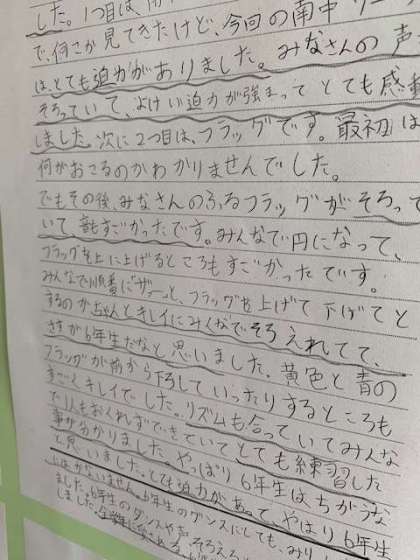 した。1つ目は、
で、何こか見てきたけど、今回の南中ソーラ
は、とても迫力がありました。みなさんの声
そろっていて、よけい迫力が強まってとても感動
しました。次に2つ目は、フラッグです。最初は
何がおこるのかわかりませんでした。
でもその後、みなさんのふるフラッグがそろって
いて、音もすごかったです。みんなで円になって、
フラッグを上に上げるところもすごかったです。
みんなで順番に"ザーッ"と、フラッグを上げて下げてと
するのがちゃんとキレイにみんなでそろえれてて、
さすが6年生だなと思いました。黄色と青の
フラッグが前から下ろしていったりするところも
すごくキレイでした。リズムも合っていてみんな
で1人もおくれずできていてとても練習した
事が分かりました。やっぱり6年生は、ちがうな
と思いました。とても迫力があって、やはり6年生
にはかないません。6年生のダンスにしても、
ました。6年生のダンスや声
しました。